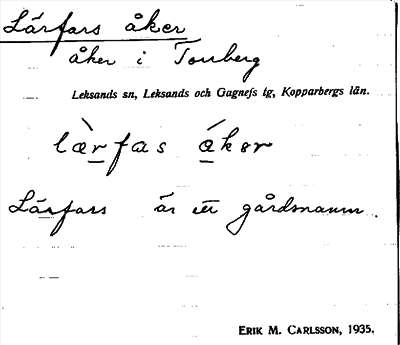 Lärfars åker
åker i Torrberg
Leksands sn, Leksands och Gagnefs tg, Kopparbergs län.
læ̀rfas ákər
Lärfars är ett gårdsnamn.
ERIK M. CARLSSON, 1935.